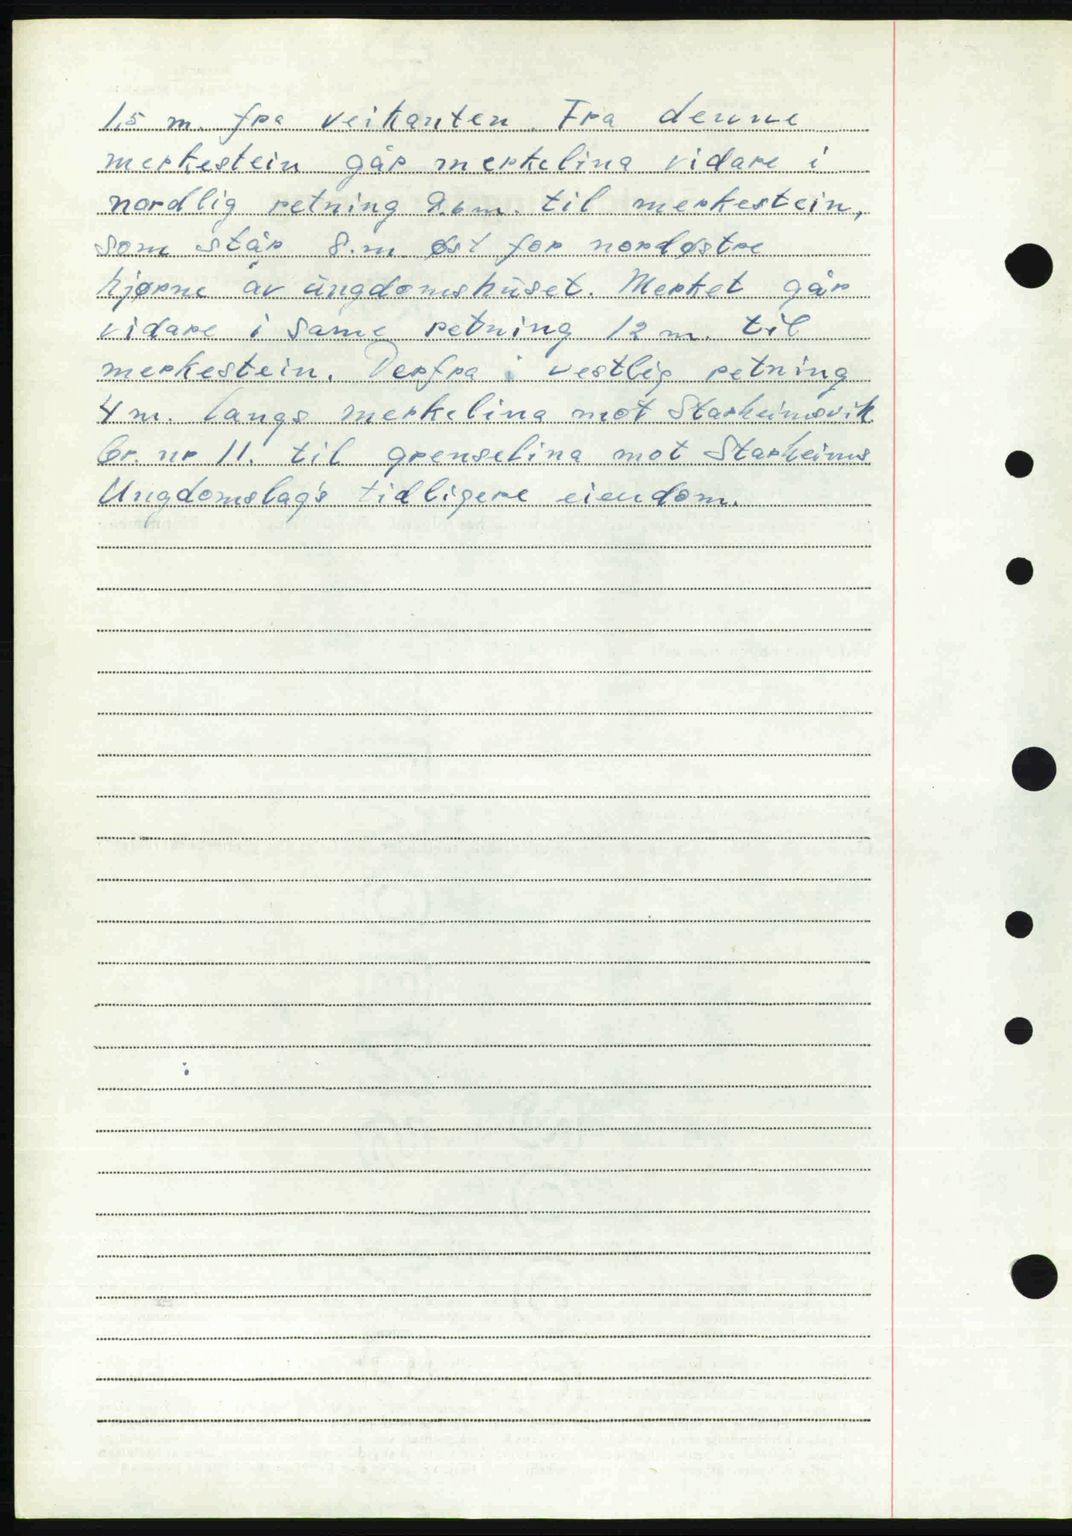 1,5 m. fra veikanten. Fra denne
merkestein går merkelina vidare i
nordlig retning 2.6 m. til merkestein,
som står 8.m øst for nordøstre
hjørne av ungdomshuset. Merket går
vidare i same retning 12 m. til
merkestein. Derfra i vestlig retning
4 m. langs merkelina mot Starheimsvik
br. nr 11. til grenselina mot Starheims
Ungdomslag's tidligere eiendom.